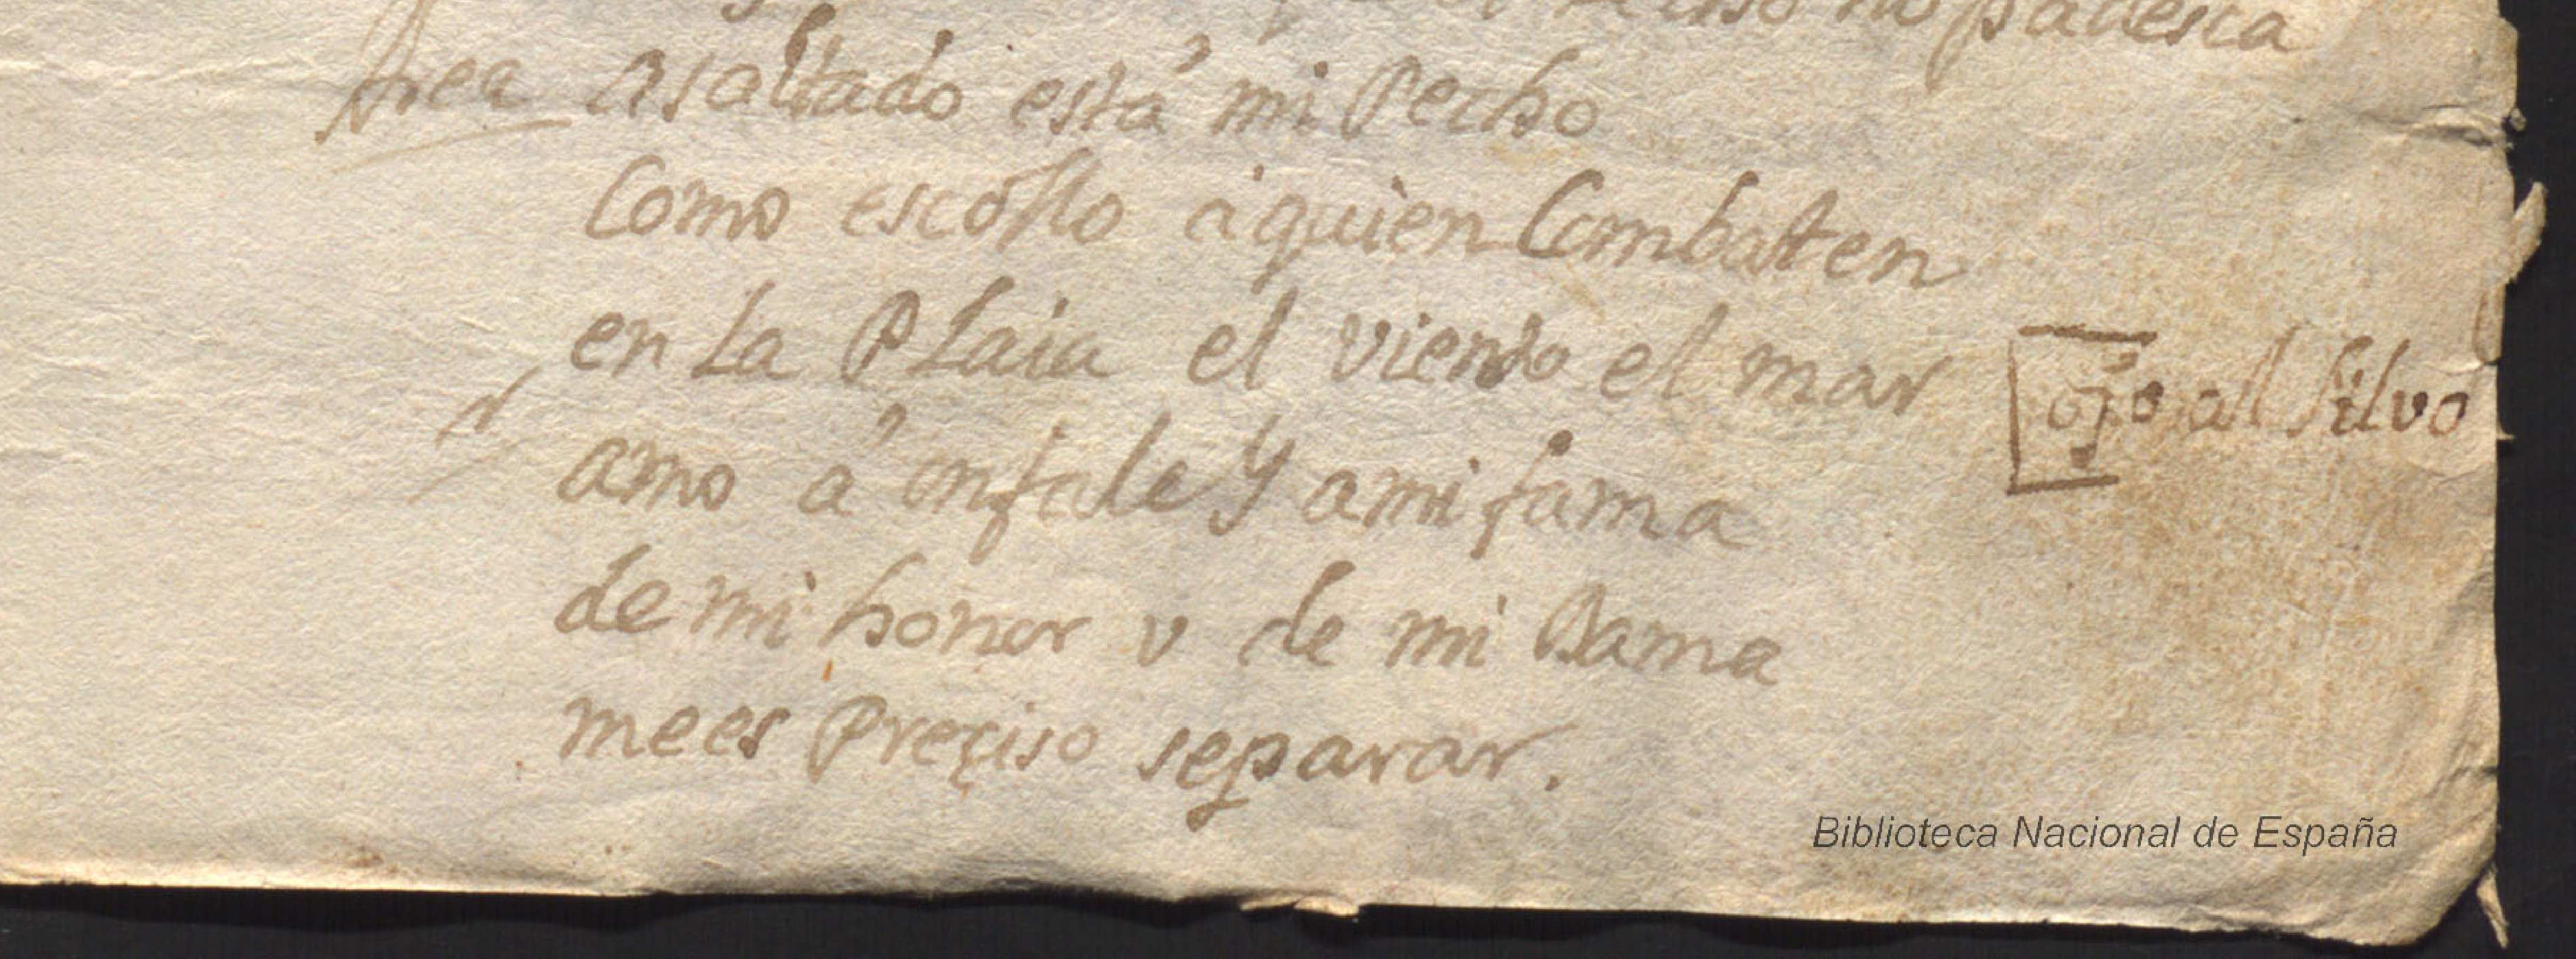 no padesca
Area asaltado está mi Pecho
Como escollo a quien Combaten
en La PLaia el viento el mar
ojo al silvo
amo á onfale Y ami fama
de mi honor v de mi Dama
mees Preçiso separar.
Biblioteca Nacional de España